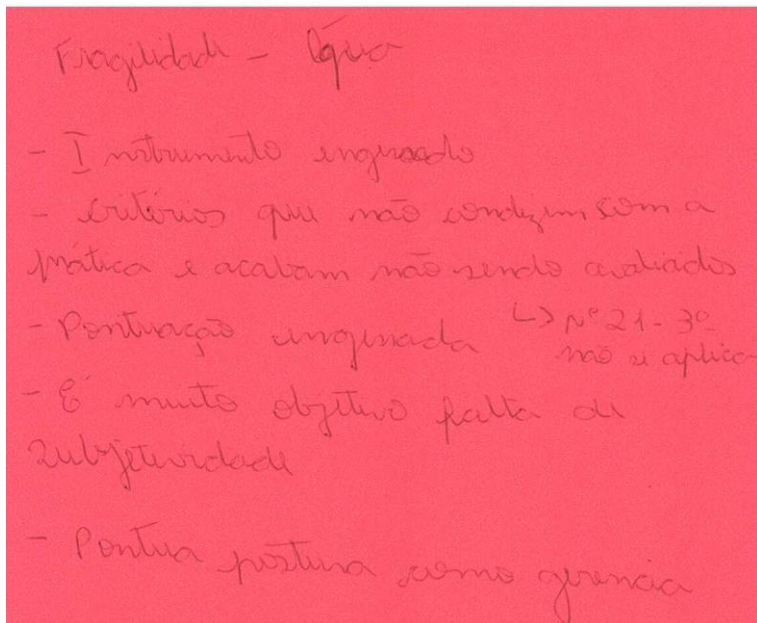 Fragilidade - Água
- Instrumento engessado
- critérios que não condizem com a
prática e acabam não sendo avaliados
- Pontuação engessada ↳ Nº 21 - 3º
não se aplica
- É muito objetivo falta de
subjetividade
- Pontua postura como gerencia